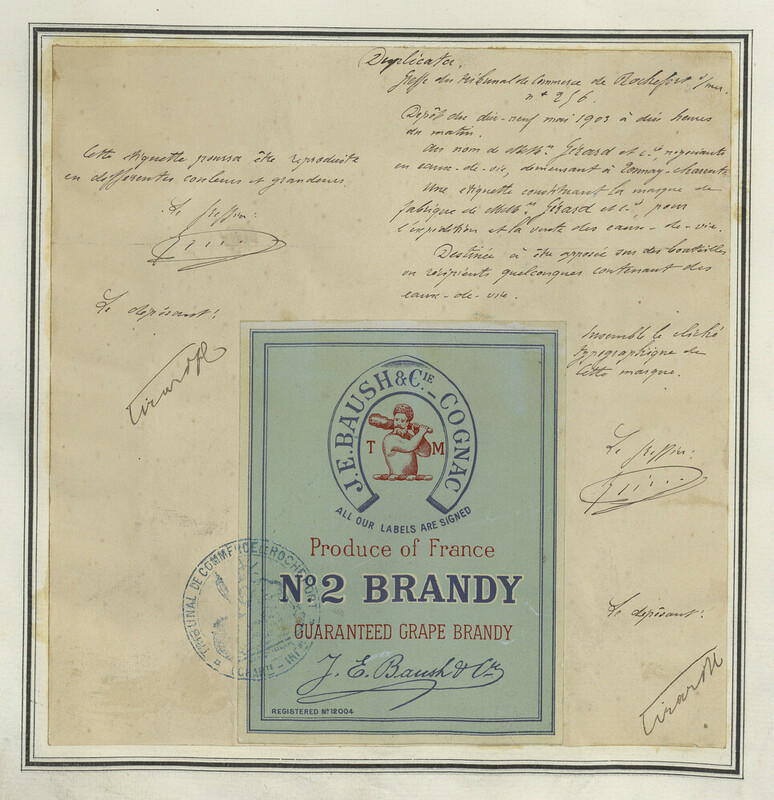 Duplicata.
Greffe du tribunal de Commerce de Rochefort s/mer.
n° 256.
Dépôt du dix-neuf mai 1903 à dix heures
du matin.
Au nom de MM. Gérard et Cie, négociants
en eaux-de-vie, demeurant à Tonnay-Charente
Une étiquette constituant la marque de
fabrique de MM. Gérard et Cie, pour
l'expédition et la vente des eaux-de-vie.
Destinée à être apposée sur des bouteilles
ou récipients quelconques contenant des
eaux-de-vie.
Ensemble le cliché
typographique de
cette marque.
Le greffier:
Le déposant:
Cette étiquette pourra être reproduite
en différentes couleurs et grandeurs.
Le greffier:
Le déposant:
J.E. BAUSH & CIE_ COGNAC
T M
ALL OUR LABELS ARE SIGNED
Produce of France
No. 2 BRANDY
GUARANTEED GRAPE BRANDY
J. E. Baush & Cie
REGISTERED No 12004
TRIBUNAL DE COMMERCE ROCHEFORT
CHARTE-INFRE